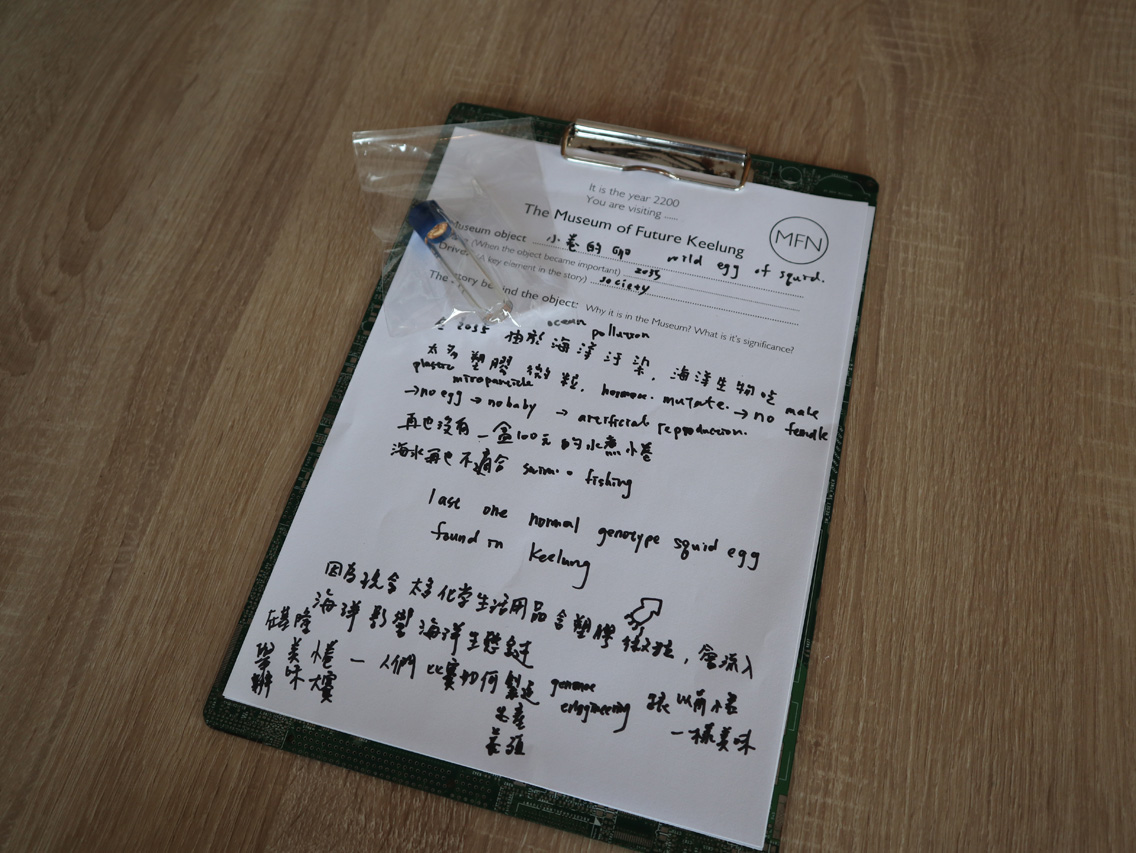 It is the year 2200
You are visiting .....
The Museum of Future Keelung
MFN
Museum object 小卷的卵 wild egg of squid.
(When the object became important) 2035
Driver (A key element in the story) society
The story behind the object: Why it is in the Museum? What is it's significance?
ocean pollution
2035 由於海洋汙染，海洋生物吃
太多塑膠微粒, hormone mutate. → no male
plastic microparticle female
→ no egg → no baby → artificial reproduction.
再也沒有一盒100元的水煮小卷
海水再也不適合 swim. fishing
last one normal genotype squid egg
found in Keelung
因為現今太多化學生活用品含塑膠微粒，會流入
海洋影響海洋生態鏈
在基隆
舉辦 美味小卷大賽 — 人們比賽如何製造 genome engineering 跟以前小卷
生產
養殖
一樣美味